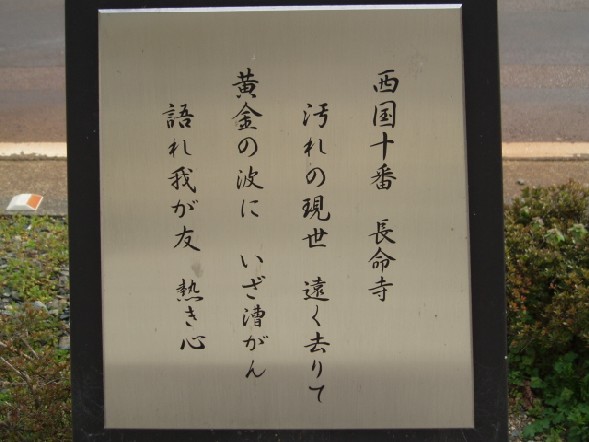 西国十番　長命寺
汚れの現世　遠く去りて
黄金の波に　いざ漕がん
語れ我が友　熱き心